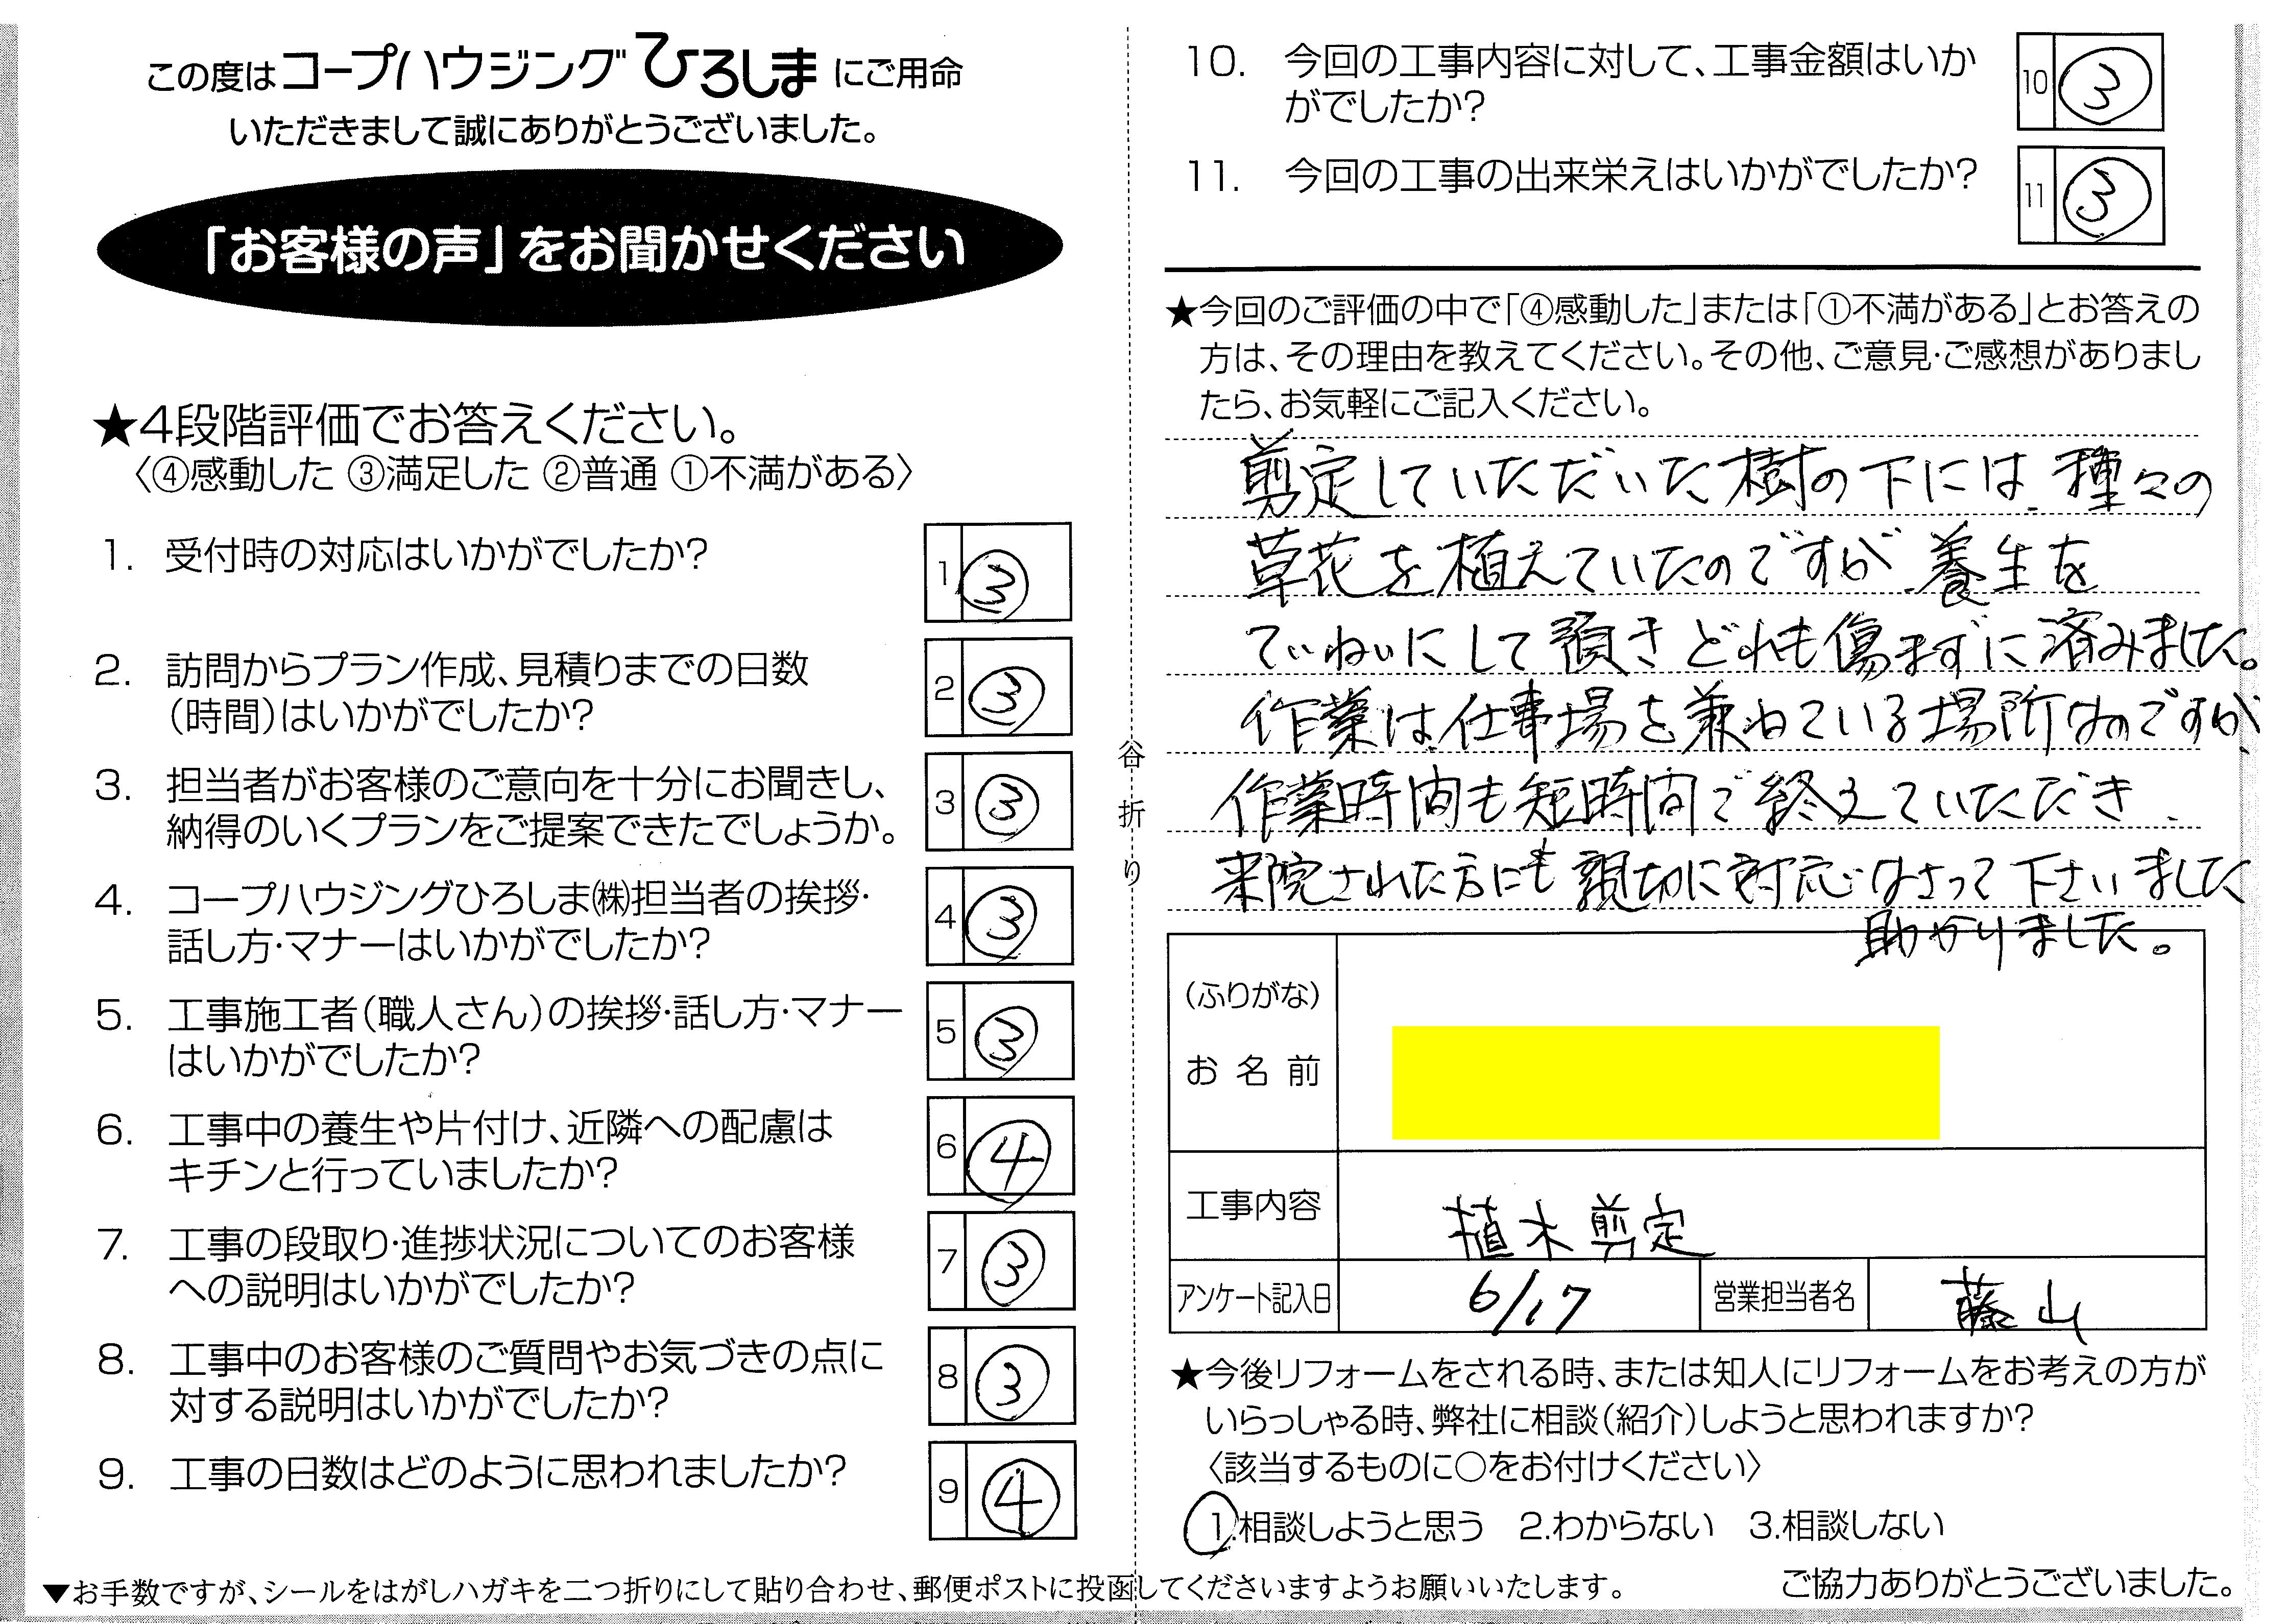 この度はコープハウジングひろしまにご用命
いただきまして誠にありがとうございました。
「お客様の声」をお聞かせください
★4段階評価でお答えください。
〈④感動した ③満足した ②普通 ①不満がある〉
1. 受付時の対応はいかがでしたか?
1 ③
2. 訪問からプラン作成、見積りまでの日数
(時間)はいかがでしたか?
2 ③
3. 担当者がお客様のご意向を十分にお聞きし、
納得のいくプランをご提案できたでしょうか。
3 ③
4. コープハウジングひろしま㈱担当者の挨拶・
話し方・マナーはいかがでしたか?
4 ③
5. 工事施工者(職人さん)の挨拶・話し方・マナー
はいかがでしたか?
5 ③
6. 工事中の養生や片付け、近隣への配慮は
キチンと行っていましたか?
6 ④
7. 工事の段取り・進捗状況についてのお客様
への説明はいかがでしたか?
7 ③
8. 工事中のお客様のご質問やお気づきの点に
対する説明はいかがでしたか?
8 ③
9. 工事の日数はどのように思われましたか?
9 ④
谷折り
10. 今回の工事内容に対して、工事金額はいか
がでしたか?
10 ③
11. 今回の工事の出来栄えはいかがでしたか?
11 ③
★今回のご評価の中で「④感動した」または「①不満がある」とお答えの
方は、その理由を教えてください。その他、ご意見・ご感想がありまし
たら、お気軽にご記入ください。
剪定していただいた樹の下には、種々の
草花を植えていたのですが、養生を
ていねいにして頂きどれも傷まずに済みました。
作業は、仕事場を兼ねている場所なのですが、
作業時間も短時間で終えていただき、
来院された方にも親切に対応なさって下さいました
助かりました。
(ふりがな)
お名前
工事内容 植木剪定
アンケート記入日 6/17 営業担当者名 藤山
★今後リフォームをされる時、または知人にリフォームをお考えの方が
いらっしゃる時、弊社に相談(紹介)しようと思われますか?
〈該当するものに○をお付けください〉
1.相談しようと思う 2.わからない 3.相談しない
▼お手数ですが、シールをはがしハガキを二つ折りにして貼り合わせ、郵便ポストに投函してくださいますようお願いいたします。
ご協力ありがとうございました。